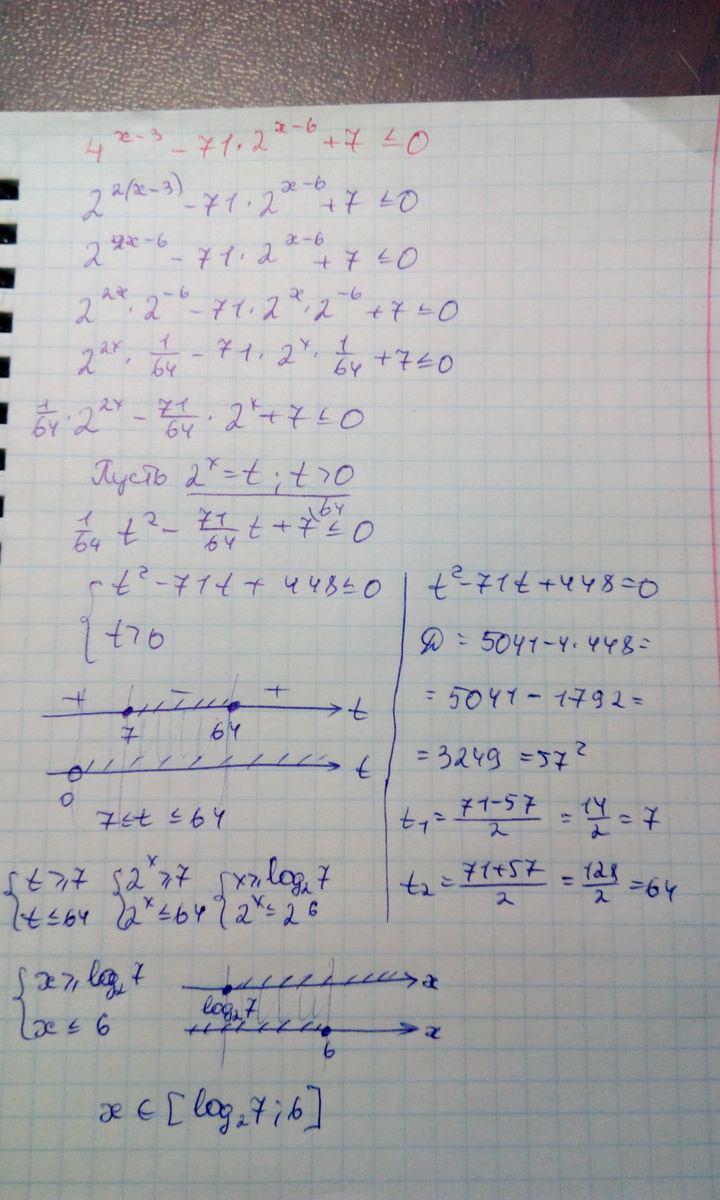 4^{x-3} - 71·2^{x-6} + 7 ≤ 0
2^{2(x-3)} - 71·2^{x-6} + 7 ≤ 0
2^{2x-6} - 71·2^{x-6} + 7 ≤ 0
2^{2x}·2^{-6} - 71·2^{x}·2^{-6} + 7 ≤ 0
2^{2x}·1/64 - 71·2^{x}·1/64 + 7 ≤ 0
1/64·2^{2x} - 71/64·2^{x} + 7 ≤ 0
Пусть 2^{x} = t ; t > 0
1/64 t² - 71/64 t + 7^{\64} ≤ 0
{ t² - 71t + 448 ≤ 0
{ t > 0
+ - + t
7 64
t
0
7 ≤ t ≤ 64
t² - 71t + 448 = 0
D = 5041 - 4·448 =
= 5041 - 1792 =
= 3249 = 57²
t₁ = (71-57)/2 = 14/2 = 7
t₂ = (71+57)/2 = 128/2 = 64
{ t ≥ 7 { 2^{x} ≥ 7 { x ≥ log₂7
{ t ≤ 64 { 2^{x} ≤ 64 { 2^{x} ≤ 2^{6}
{ x ≥ log₂7
{ x ≤ 6
x
log₂7
x
6
x ∈ [log₂7 ; 6]